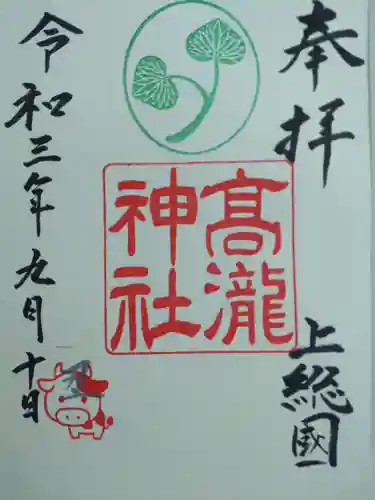 奉拝
上総國
髙瀧
神社
令和三年九月十日